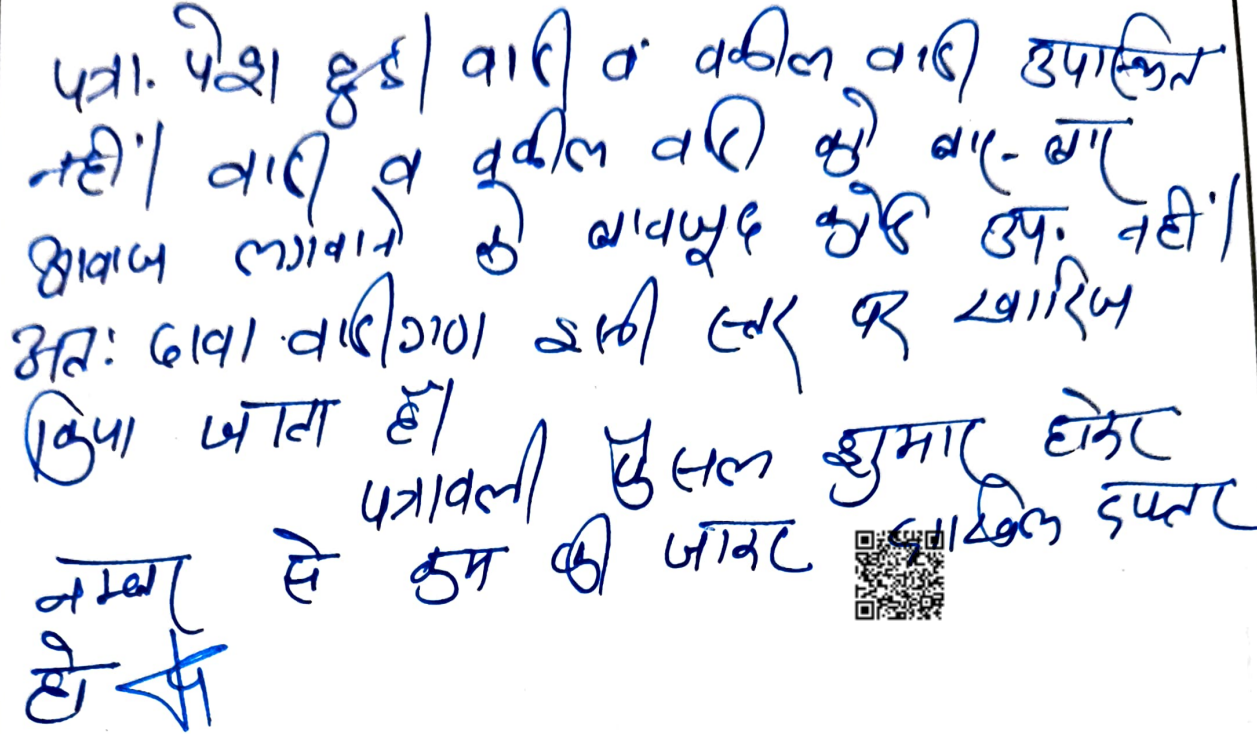 पत्रा. पेश हुई। वादी व वकील वादी उपस्थित
नहीं। वादी व वकील वादी को बार-बार
आवाज लगवाने के बावजूद कोई उप. नहीं।
अतः दावा वादीगण इसी स्तर पर खारिज
किया जाता है।
पत्रावली फैसल शुमार होकर
नम्बर से कम की जाकर दाखिल दफ्तर
हो